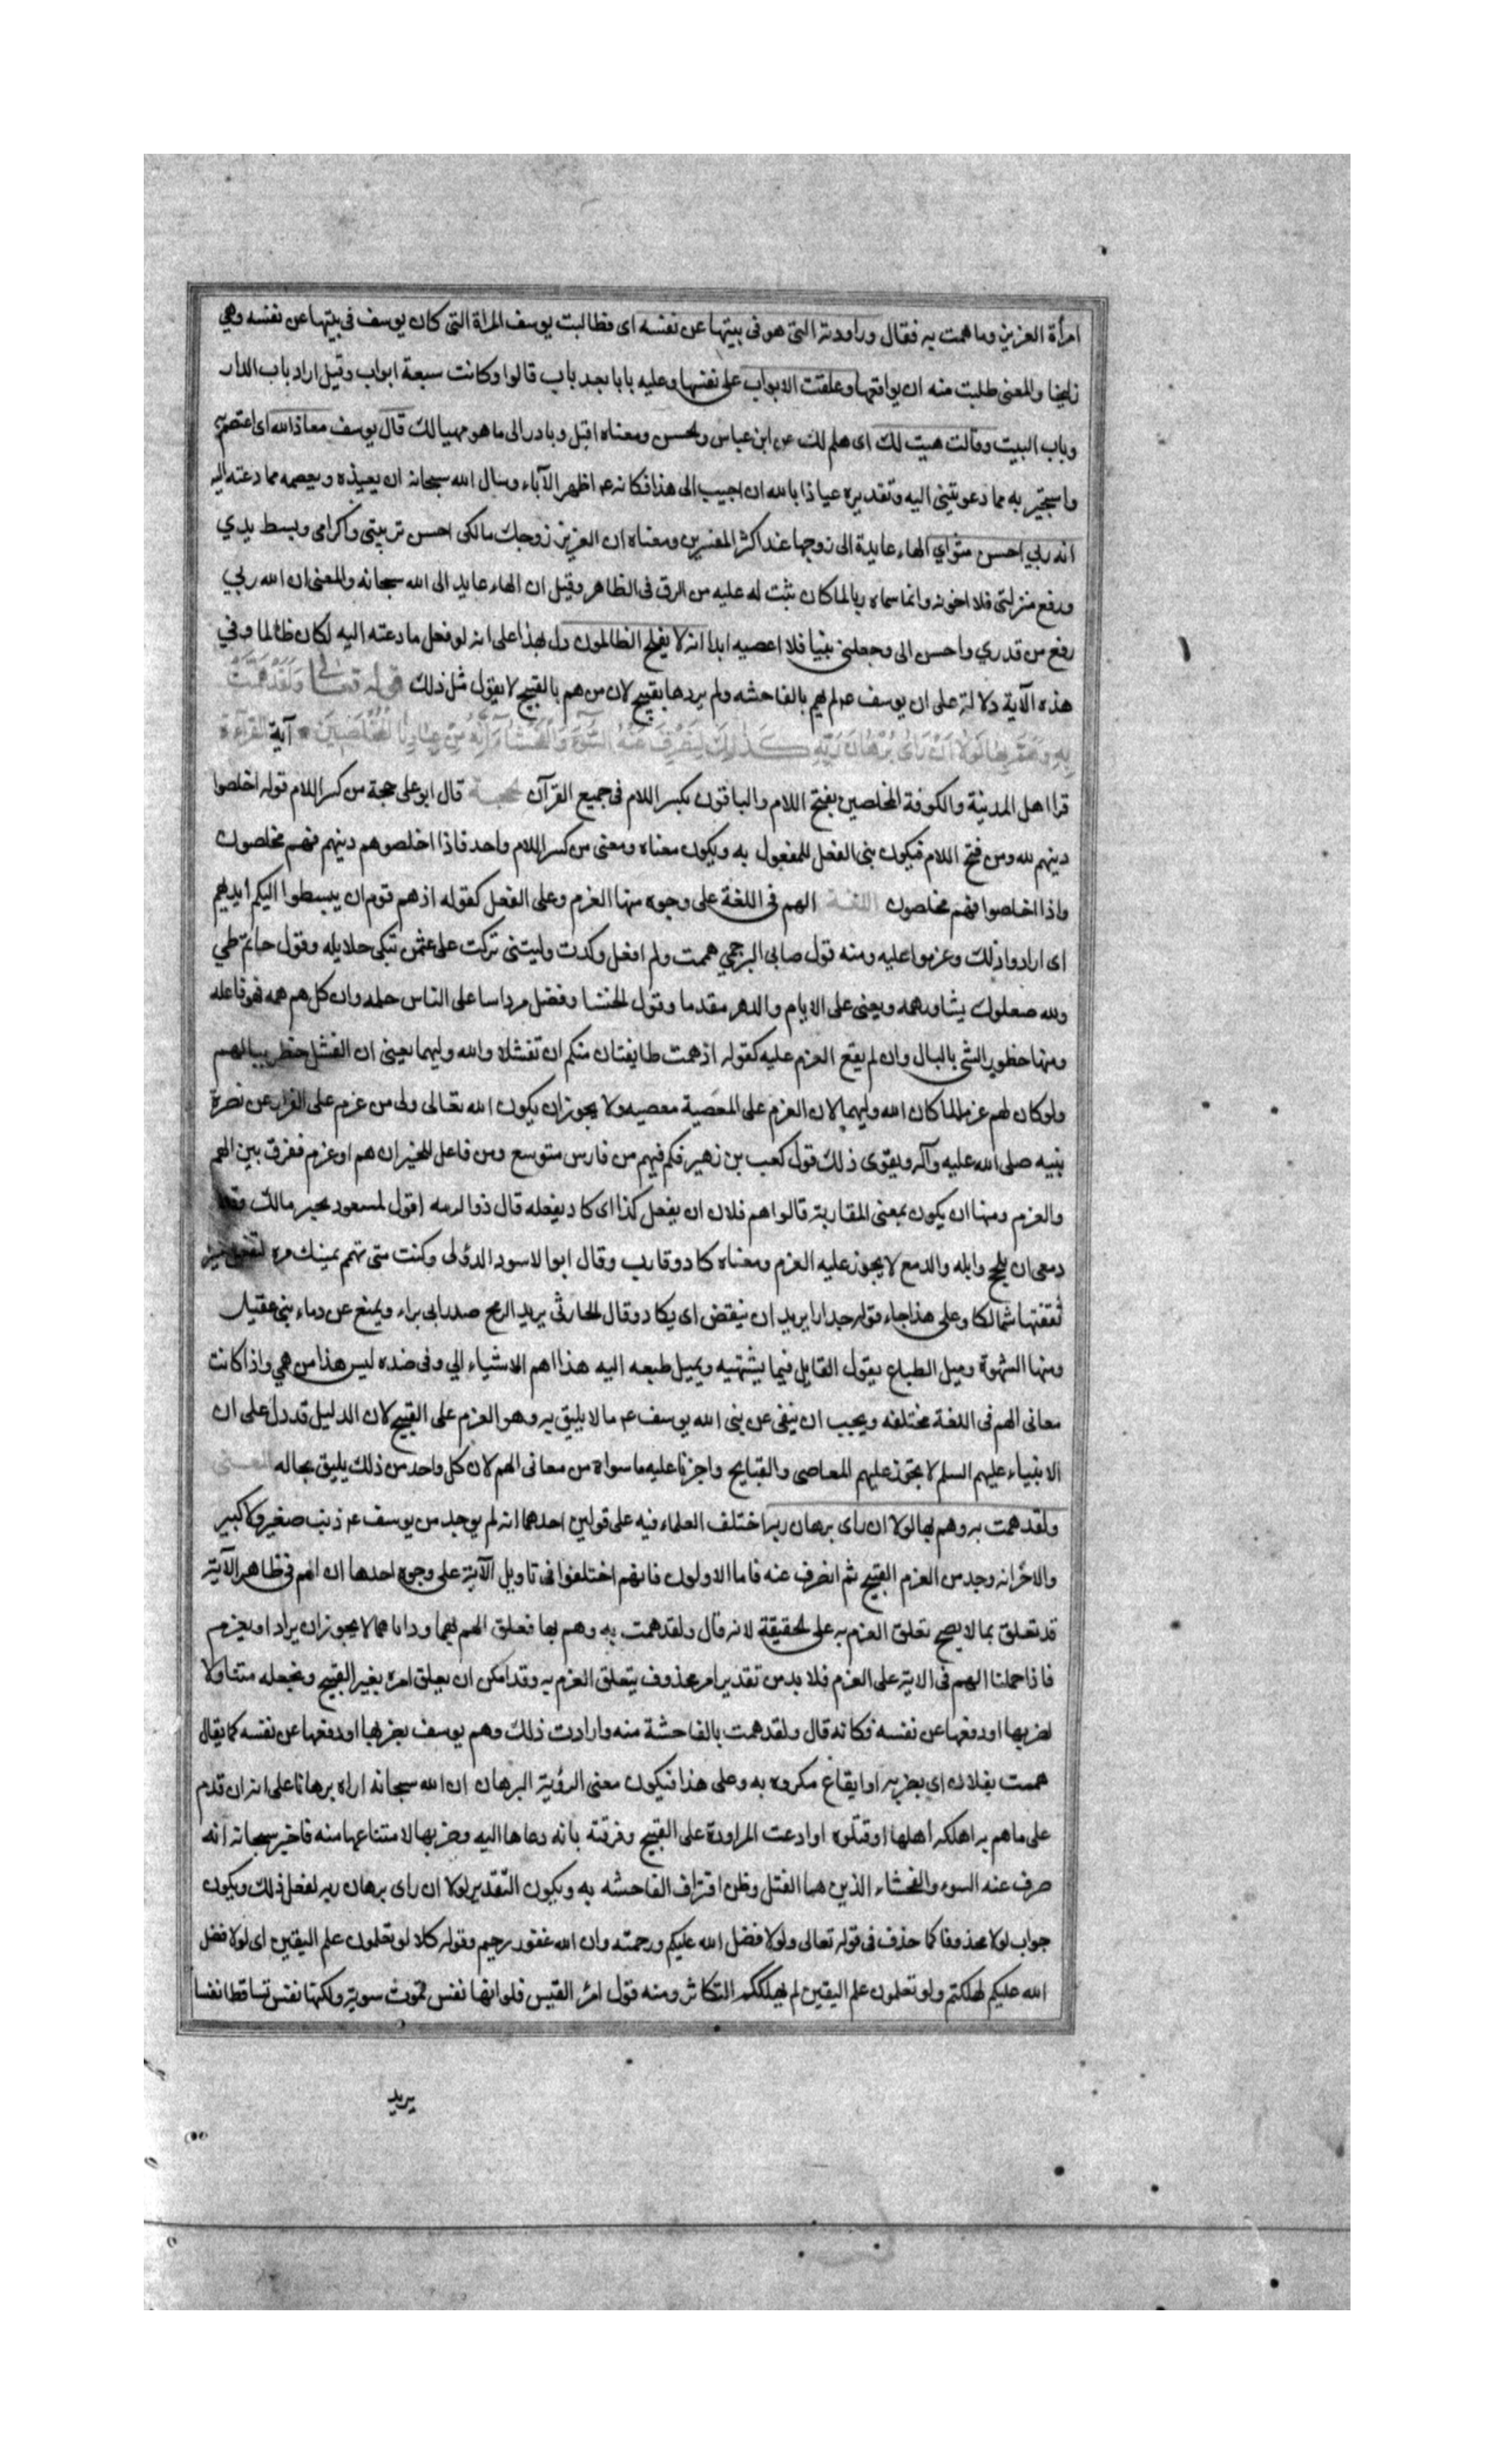 امرأة العزيز وما همت به فقال وراودته التي هو في بيتها عن نفسه اى وطالبت يوسف المراة التى كان يوسف في بيتها عن نفسه وهي
زليخا والمعنى طلبت منه ان يواقعها وغلقت الابواب على نفسها وعليه بابا بعد باب قالوا وكانت سبعة ابواب وقيل اراد باب الدار
وباب البيت وقالت هيت لك اى هلم لك عن ابن عباس والحسن ومعناه اقبل وبادر الى ما هو مهيا لك قال يوسف معاذ الله اى اعتصم بالله
واستجير به مما دعوتنى اليه وتقديره عياذا بالله ان اجيب الى هذا فكانه عم اظهر الآباء وسال الله سبحانه ان يعيذه ويعصمه مما دعته اليه
انه ربي احسن مثواي الهاء عايدة الى زوجها عند اكثر المفسرين ومعناه ان العزيز زوجك مالكى احسن تربيتى واكرامى وبسط يدي
ورفع منزلتى فلا اخونه وانما سماه ربا لما كان ثبت له عليه من الرق فى الظاهر وقيل ان الهاء عايد الى الله سبحانه والمعنى ان الله ربي
رفع من قدري واحسن الى وجعلنى نبيا فلا اعصيه ابدا انه لا يفلح الظالمون دل بهذا على انه لو فعل ما دعته اليه لكان ظالما وفي
هذه الآية دلالة على ان يوسف عم لم يهم بالفاحشه ولم يردها بقبيح لان من هم بالقبيح لا يقول مثل ذلك قوله تعالى وَلَقَدْ هَمَّتْ
بِهِ وَهَمَّ بِهَا لَوْلَا اَنْ رَاىٰ بُرْهَانَ رَبِّهِ كَذٰلِكَ لِنَصْرِفَ عَنْهُ السُّوٓءَ وَالْفَحْشَاءَ اِنَّهُ مِنْ عِبَادِنَا الْمُخْلَصِينَ آية القراءة
قرا اهل المدينة والكوفة المخلصين بفتح اللام والباقون بكسر اللام فى جميع القرآن الحجة قال ابو على حجة من كسر اللام قوله اخلصوا
دينهم لله ومن فتح اللام فيكون بنى الفعل للمفعول به ويكون معناه ومعنى من كسر اللام واحد فاذا اخلصوهم دينهم فهم مخلصون
واذا اخلصوا فهم مخلصون اللغة الهم فى اللغة على وجوه منها العزم وعلى الفعل كقوله اذ هم قوم ان يبسطوا اليكم ايديهم
اى ارادوا ذلك وعزموا عليه ومنه قول صابى البرجمي هممت ولم افعل وكدت وليتنى تركت على عثمن تبكى حلايله وقول حاتم طي
ولله صعلوك يشاور همه ويمضى على الايام والدهر مقدما وقول الخنسا وفضل مرداسا على الناس حلمه وان كل هم همه فهو فاعله
ومنها خطور الشي بالبال وان لم يقع العزم عليه كقوله اذ همت طايفتان منكم ان تفشلا والله وليهما يعنى ان الفشل خطر ببالهم
ولو كان لهم عزم لما كان الله وليهما لان العزم على المعصية معصيه ولا يجوز ان يكون الله تعالى ولى من عزم على الفرار عن نصرة
نبيه صلى الله عليه وآله ويقوى ذلك قول كعب بن زهير فكم فيهم من فارس متوسع ومن فاعل للخير ان هم او عزم ففرق بين الهم
والعزم ومنها ان يكون بمعنى المقاربة قالوا هم فلان ان يفعل كذا اى كاد يفعله قال ذوا لرمه اقول لمسعود بجير مالك وقد
دمعى ان يلج وابله والدمع لا يجوز عليه العزم ومعناه كاد وقارب وقال ابو الاسود الدؤلى وكنت متى تهم يمينك مرة
ثقفتها شمالكا وعلى هذا جاء قوله جدارا يريد ان ينقض اى يكاد وقال الحارثى يريد الرمح صدر ابى براء ويمنع عن دماء بنى عقيل
ومنها الشهوة وميل الطباع يقول القايل فيما يشتهيه ويميل طبعه اليه هذا اهم الاشياء الي وفى ضده ليس هذا من همي واذا كانت
معانى الهم فى اللغة مختلفه ويجب ان ينفى عن نبى الله يوسف عم ما لا يليق به وهو العزم على القبيح لان الدليل قد دل على ان
الانبياء عليهم السلم لا يجوز عليهم المعاصى والقبايح واجزنا عليه ما سواه من معانى الهم لان كل واحد من ذلك يليق بحاله المعنى
ولقد همت به وهم بها لولا ان راى برهان ربه اختلف العلماء فيه على قولين احدهما انه لم يوجد من يوسف عم ذنب صغير ولا كبير
والاخر انه وجد من العزم القبيح ثم انصرف عنه فاما الاولون فانهم اختلفوا فى تاويل الآية على وجوه احدها ان الهم فى ظاهر الآية
قد تعلق بما لا يصح تعلق العزم به على الحقيقة لانه قال ولقد همت به وهم بها فعلق الهم بهما وذاتاهما لا يجوز ان يراد او يعزم
فاذا حملنا الهم فى الاية على العزم فلا بد من تقدير امر محذوف يتعلق العزم به وقد امكن ان يعلق امره بغير القبيح ويجعله متناولا
لضربها او دفعها عن نفسه فكانه قال ولقد همت بالفاحشة منه وارادت ذلك وهم يوسف بضربها او دفعها عن نفسه كما يقال
هممت بفلان اى بضربه او ايقاع مكروه به وعلى هذا فيكون معنى الرؤية البرهان ان الله سبحانه اراه برهانا على انه ان قدم
على ما هم به اهلكه اهلها او قتلوه او ادعت المراودة على القبيح وقرفته بانه دعاها اليه وضربها لامتناعها منه فاخبر سبحانه انه
صرف عنه السوء والفحشاء الذين هما القتل وظن اقتراف الفاحشه به ويكون التقدير لولا ان راى برهان ربه لفعل ذلك ويكون
جواب لولا محذوفا كما حذف فى قوله تعالى ولولا فضل الله عليكم ورحمته وان الله غفور رحيم وقوله كلا لو تعلمون علم اليقين اى لولا فضل
الله عليكم لهلكتم ولو تعلمون علم اليقين لم يهلككم التكاثر ومنه قول امرؤ القيس فلو انها نفس تموت سوية ولكنها نفس تساقط انفسا
يريد